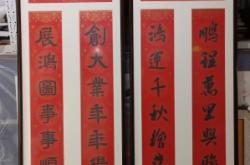 鵬程萬里興
鴻運千秋
創大業年年
展鴻圖事事順